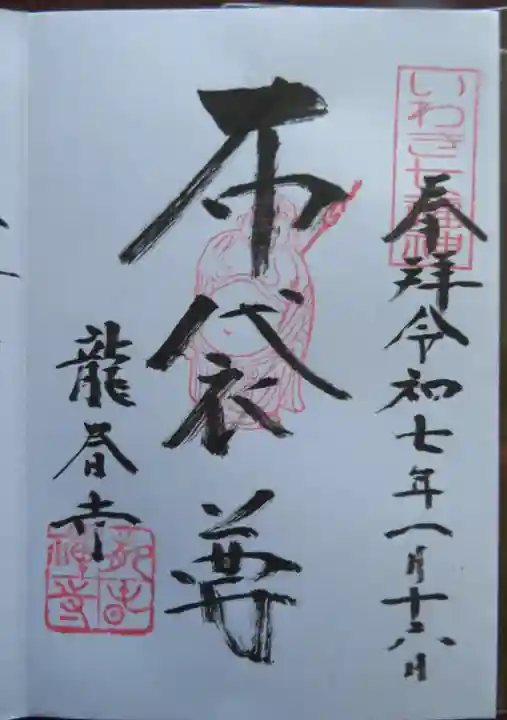 いわき七福神
奉拝令和七年八月十六日
布袋尊
龍春寺